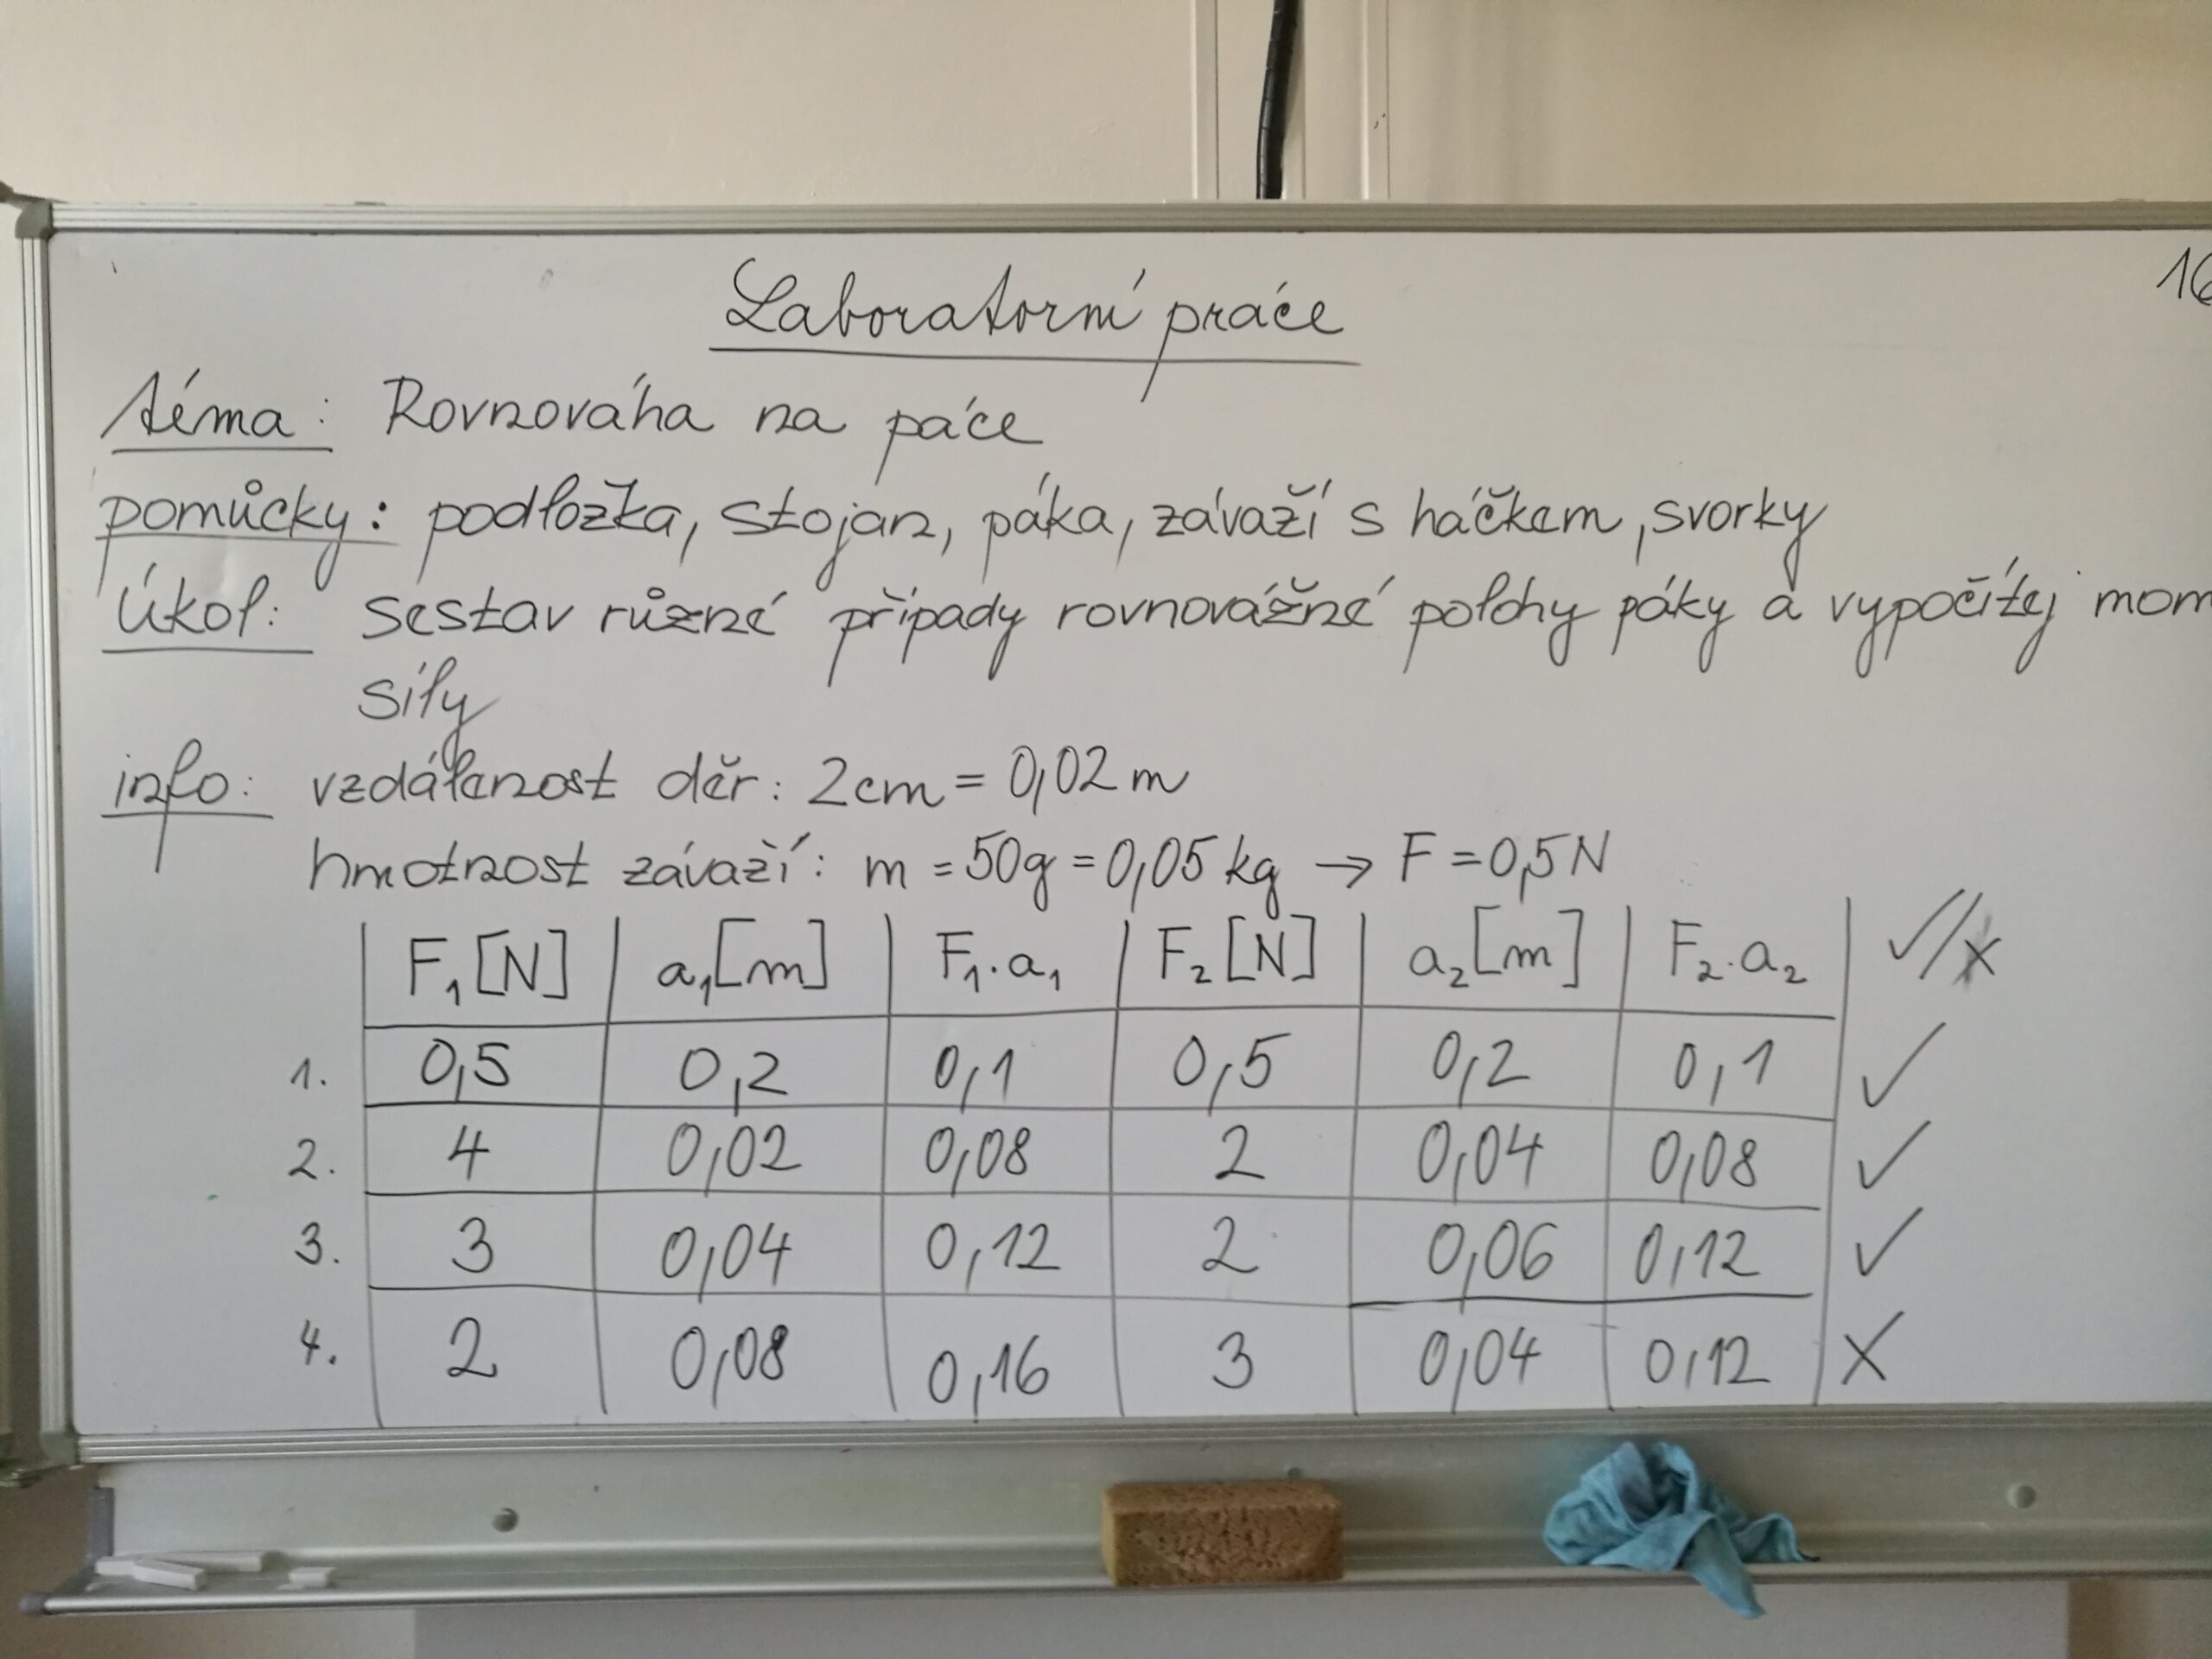 Laboratorní práce
téma: Rovnováha na páce
pomůcky: podložka, stojan, páka, závaží s háčkem, svorky
Úkol: sestav různé případy rovnovážné polohy páky a vypočítej
síly
info: vzdálenost děr: 2cm = 0,02 m
hmotnost závaží: m = 50g = 0,05 kg → F = 0,5 N
F₁[N] a₁[m] F₁·a₁ F₂[N] a₂[m] F₂·a₂ ✓/x
1. 0,5 0,2 0,1 0,5 0,2 0,1 ✓
2. 4 0,02 0,08 2 0,04 0,08 ✓
3. 3 0,04 0,12 2 0,06 0,12 ✓
4. 2 0,08 0,16 3 0,04 0,12 X